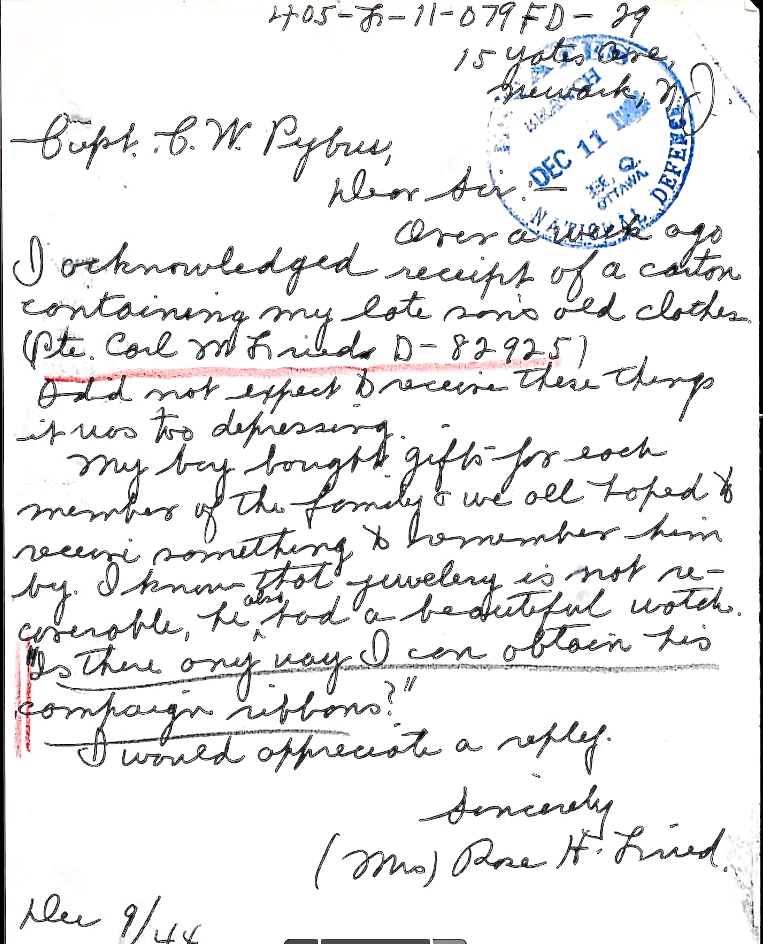 405-F-11-079 FD-29
15 Yates Ave,
Newark, N.J.
DEC 11
H. Q.
OTTAWA
NATIONAL DEFENCE
Capt. C. W. Pybus,
Dear Sir:-
Over a week ago
I acknowledged receipt of a carton
containing my late son's old clothes.
(Pte. Carl M Fried D-82925)
I did not expect to receive these things
it was too depressing.
My boy bought gifts for each
member of the family & we all hoped to
receive something to remember him
by. I know that juwelery is not re-
coverable, he also had a beautiful watch.
"Is there any way I can obtain his
campaign ribbons?"
I would appreciate a reply.
Sincerely
(Mrs) Rose H. Fried.
Dec 9/44